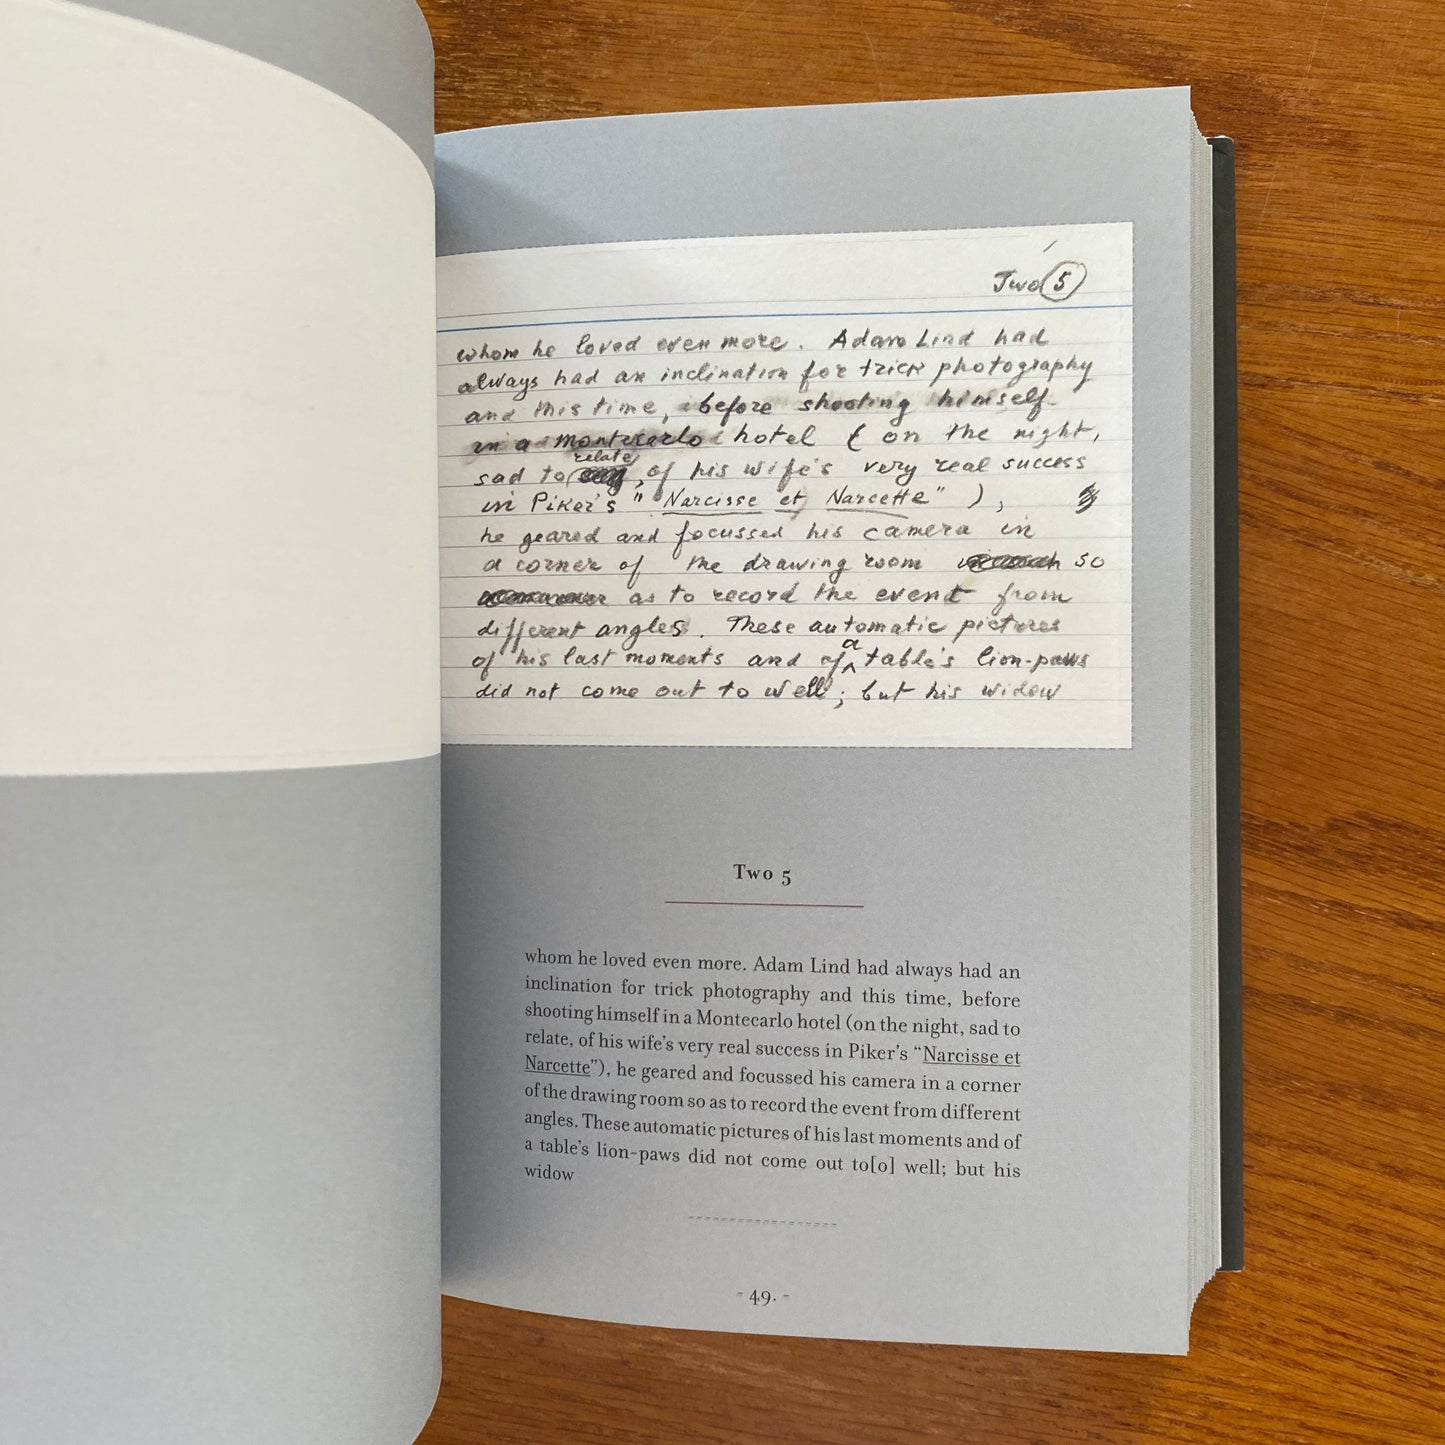 Two 5
whom he loved even more. Adam Lind had
always had an inclination for trick photography
and this time, before shooting himself
in a montecarlo hotel (on the night,
relate
sad to , of his wife's very real success
in Piker's "Narcisse et Narcette"),
he geared and focussed his camera in
a corner of the drawing room so
as to record the event from
different angles. These automatic pictures
a
of his last moments and of table's lion-paws
did not come out to well; but his widow
Two 5
whom he loved even more. Adam Lind had always had an
inclination for trick photography and this time, before
shooting himself in a Montecarlo hotel (on the night, sad to
relate, of his wife's very real success in Piker's “Narcisse et
Narcette”), he geared and focussed his camera in a corner
of the drawing room so as to record the event from different
angles. These automatic pictures of his last moments and of
a table's lion-paws did not come out to[o] well; but his
widow
- 49. -